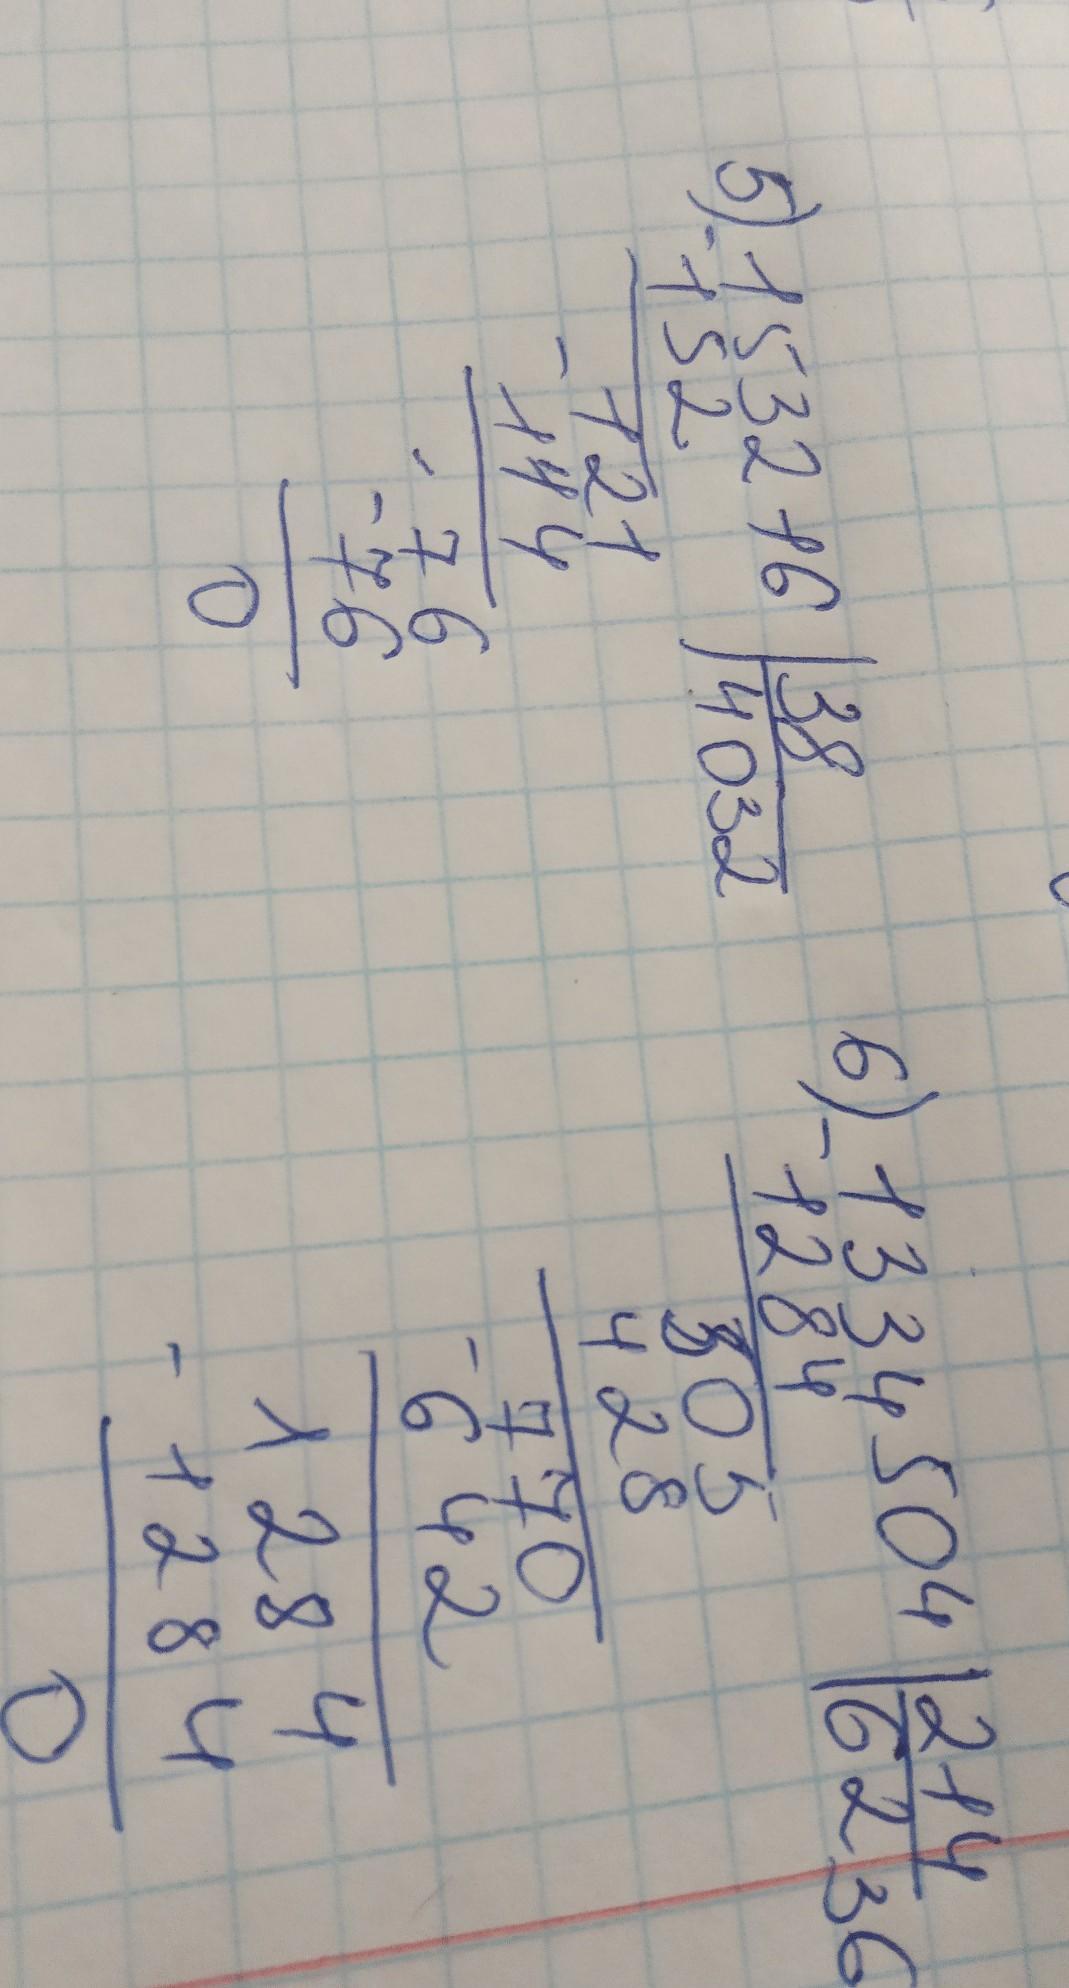 5) 153216 | 38
- 152 | 4032
- 121
144
- 76
- 76
0
6) 1334504 | 214
- 1284 | 6236
505
428
770
- 642
1284
- 1284
0